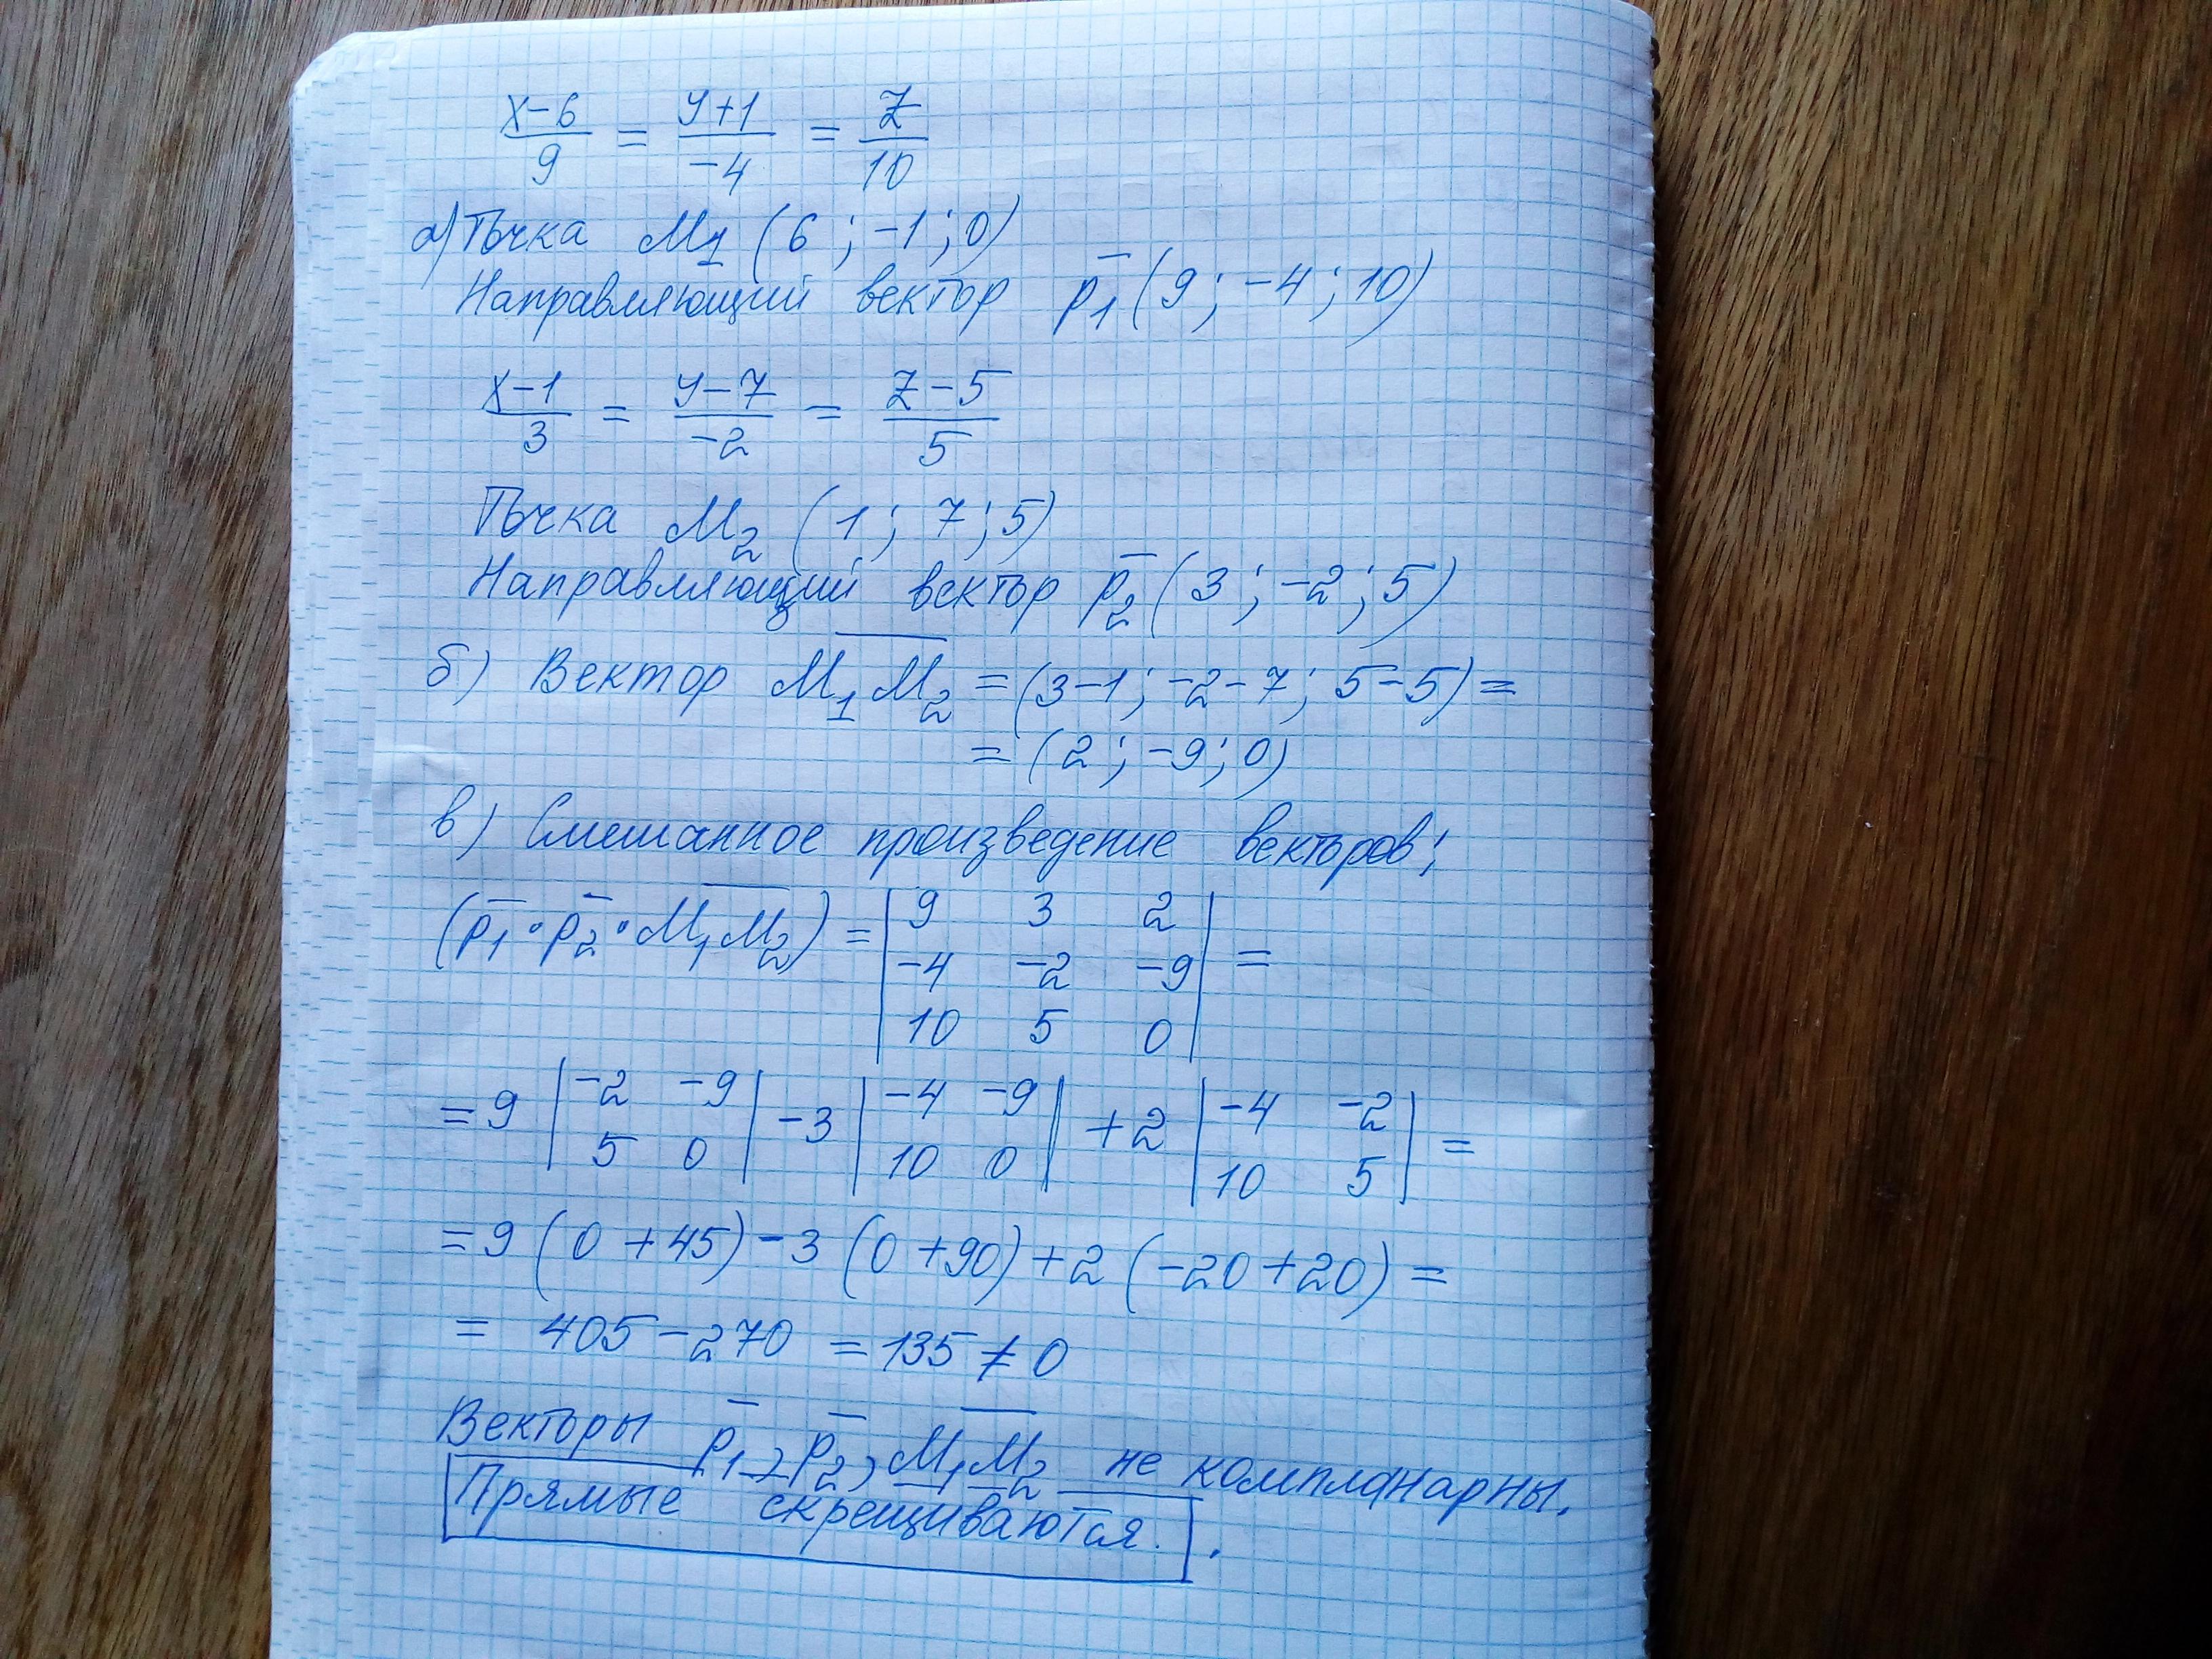 x-6/9 = y+1/-4 = z/10
а) Точка M1 (6; -1; 0)
Направляющий вектор p̄1 (9; -4; 10)
x-1/3 = y-7/-2 = z-5/5
Точка M2 (1; 7; 5)
Направляющий вектор p̄2 (3; -2; 5)
б) Вектор M1M2 = (3-1; -2-7; 5-5) =
= (2; -9; 0)
в) Смешанное произведение векторов:
(p̄1 · p̄2 · M1M2) = | 9 3 2 |
| -4 -2 -9 | =
| 10 5 0 |
= 9 | -2 -9 | - 3 | -4 -9 | + 2 | -4 -2 | =
| 5 0 | | 10 0 | | 10 5 |
= 9 (0 + 45) - 3 (0 + 90) + 2 (-20 + 20) =
= 405 - 270 = 135 ≠ 0
Векторы p̄1, p̄2, M1M2 не компланарны.
Прямые скрещиваются.